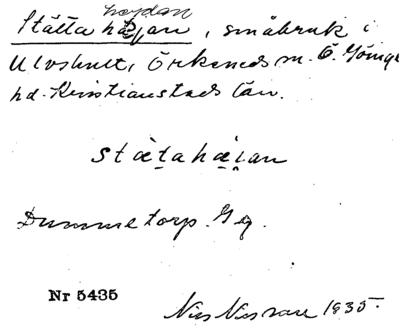 hojdan
Stätta häjan, småbruk i
Ulvshult, Örkeneds sn. Ö. Göinge
hd. Kristianstads län.
stätahäjan
Dummetorp. Gg.
Nr 5435
Nils Nilsson 1935.